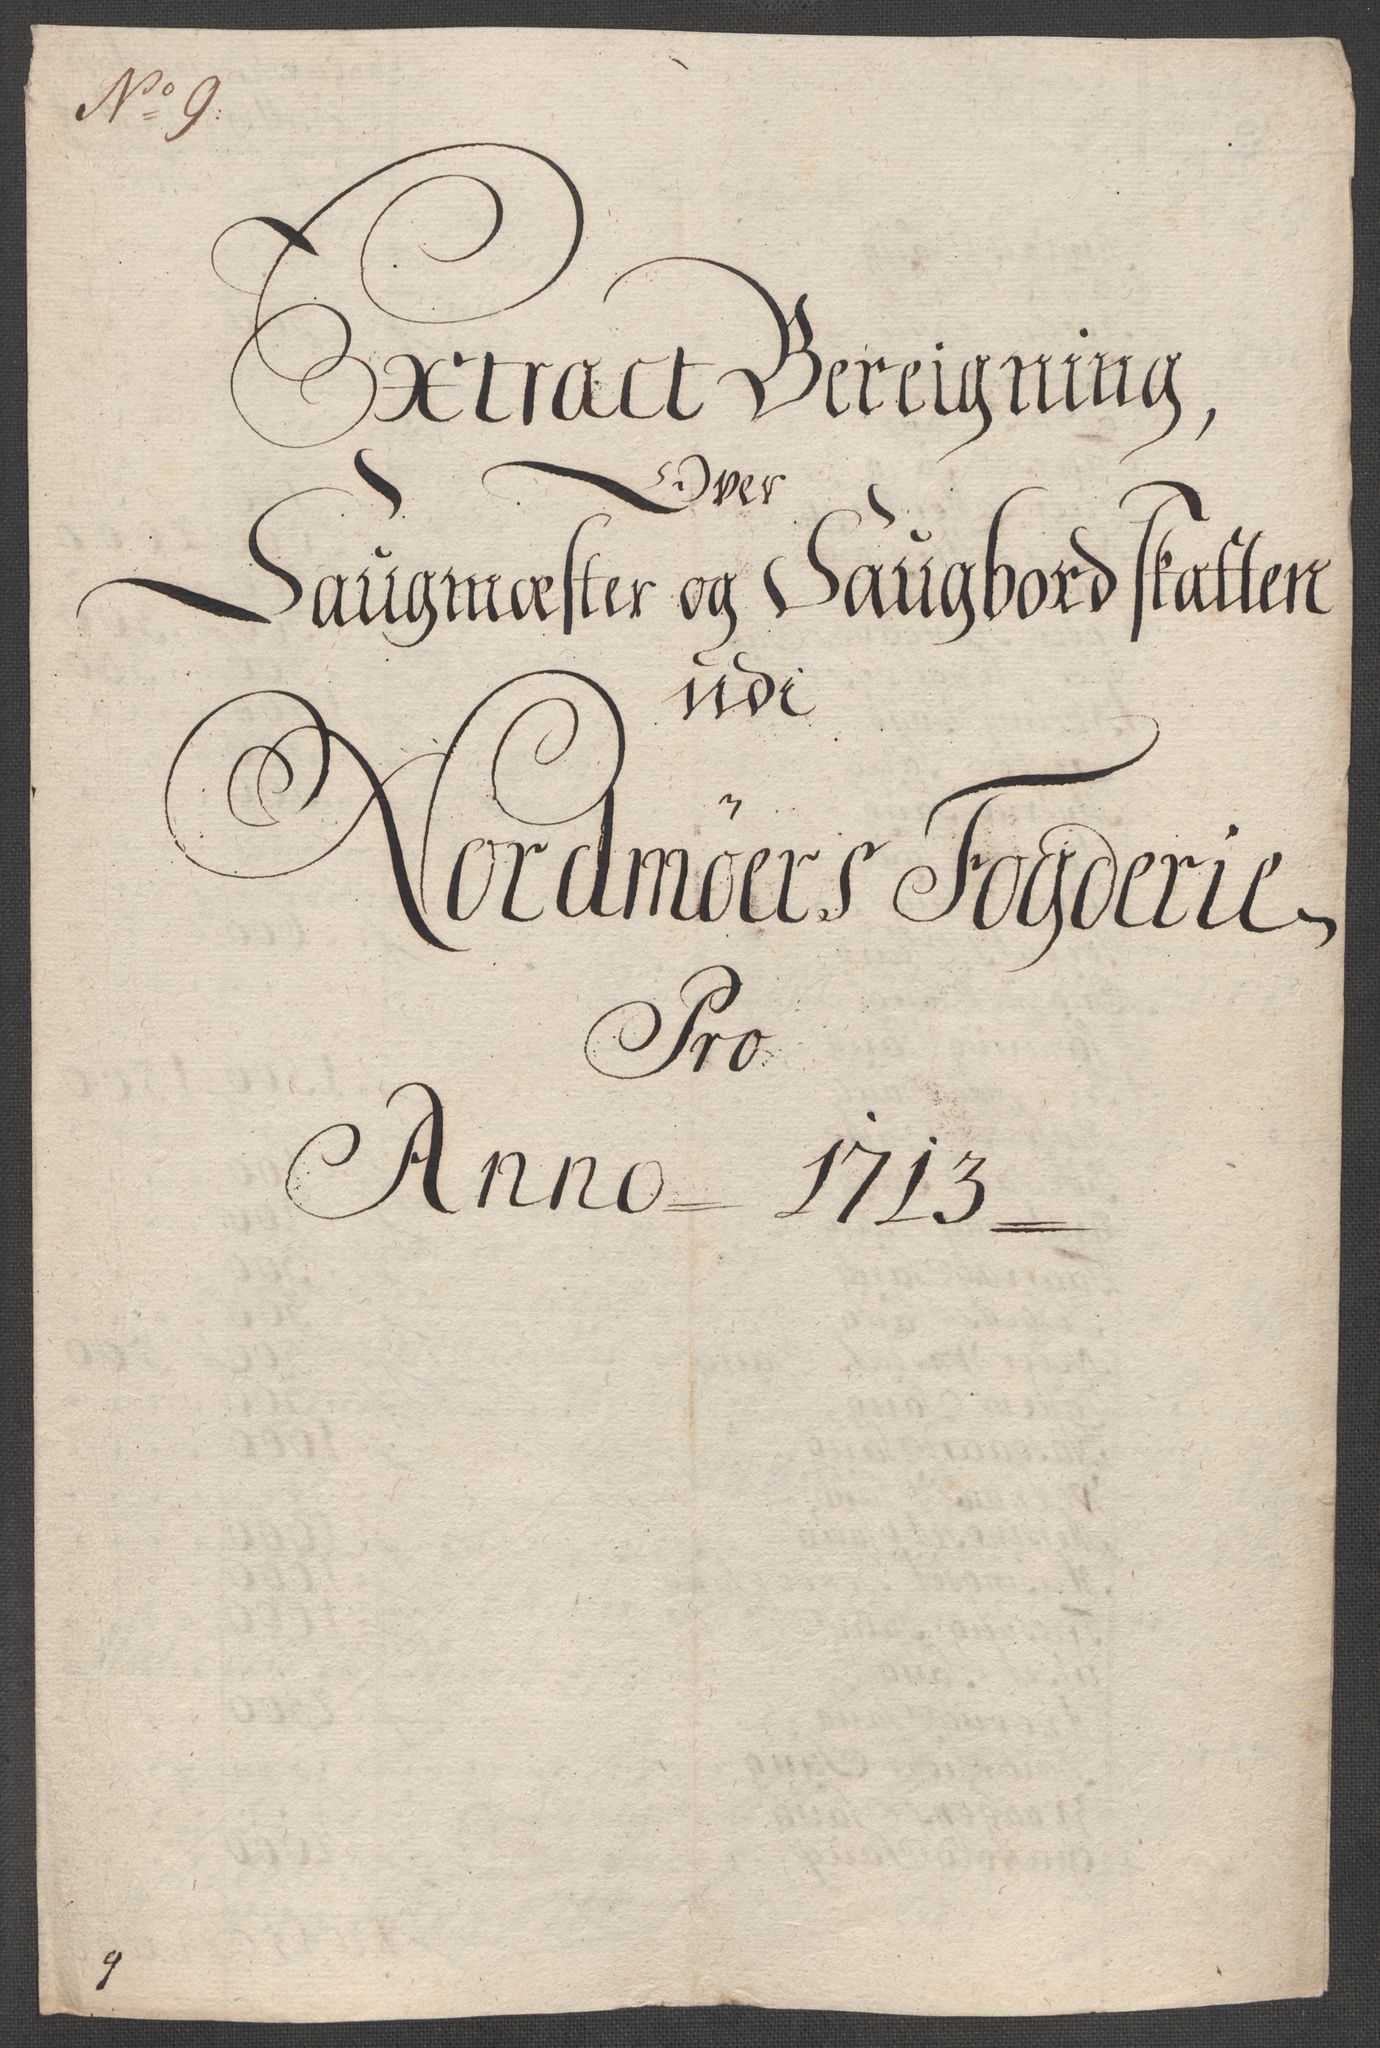 No 9:
Extract Bereigning,
Over
Saugmæster og Saugbord skatten
udi
Nordmöers Fogderie,
Pro
Anno 1713
9